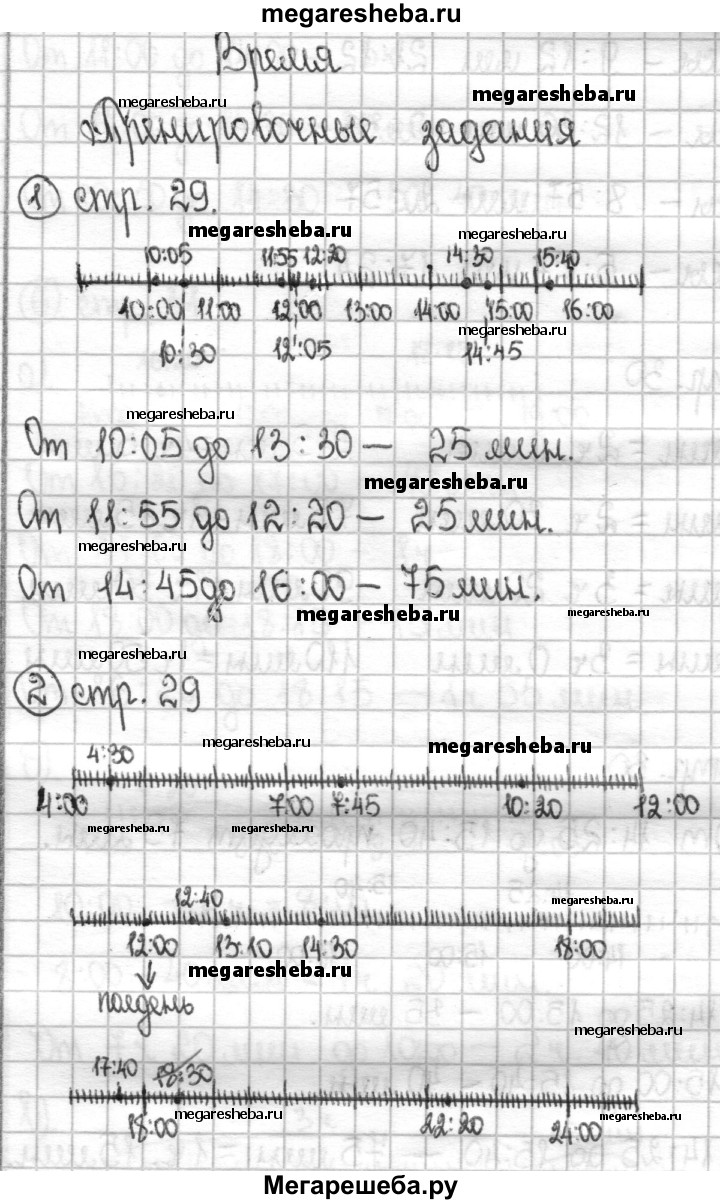 megaresheba.ru
Время
megaresheba.ru megaresheba.ru
Тренировочные задания
1 стр. 29.
megaresheba.ru megaresheba.ru
10:05 11:55 12:20 14:30 15:40
10:00 11:00 12:00 13:00 14:00 15:00 16:00
megaresheba.ru
10:30 12:05 14:45
megaresheba.ru
От 10:05 до 13:30 — 25 мин.
megaresheba.ru
От 11:55 до 12:20 — 25 мин.
megaresheba.ru
От 14:45 до 16:00 — 75 мин.
megaresheba.ru megaresheba.ru
megaresheba.ru
2 стр. 29
megaresheba.ru megaresheba.ru
4:30
4:00 7:00 7:45 10:20 12:00
megaresheba.ru megaresheba.ru
12:40 megaresheba.ru
12:00 13:10 14:30 18:00
megaresheba.ru
полдень
megaresheba.ru
17:40 18:30
megaresheba.ru megaresheba.ru
18:00 22:20 24:00
Мегарешеба.ру